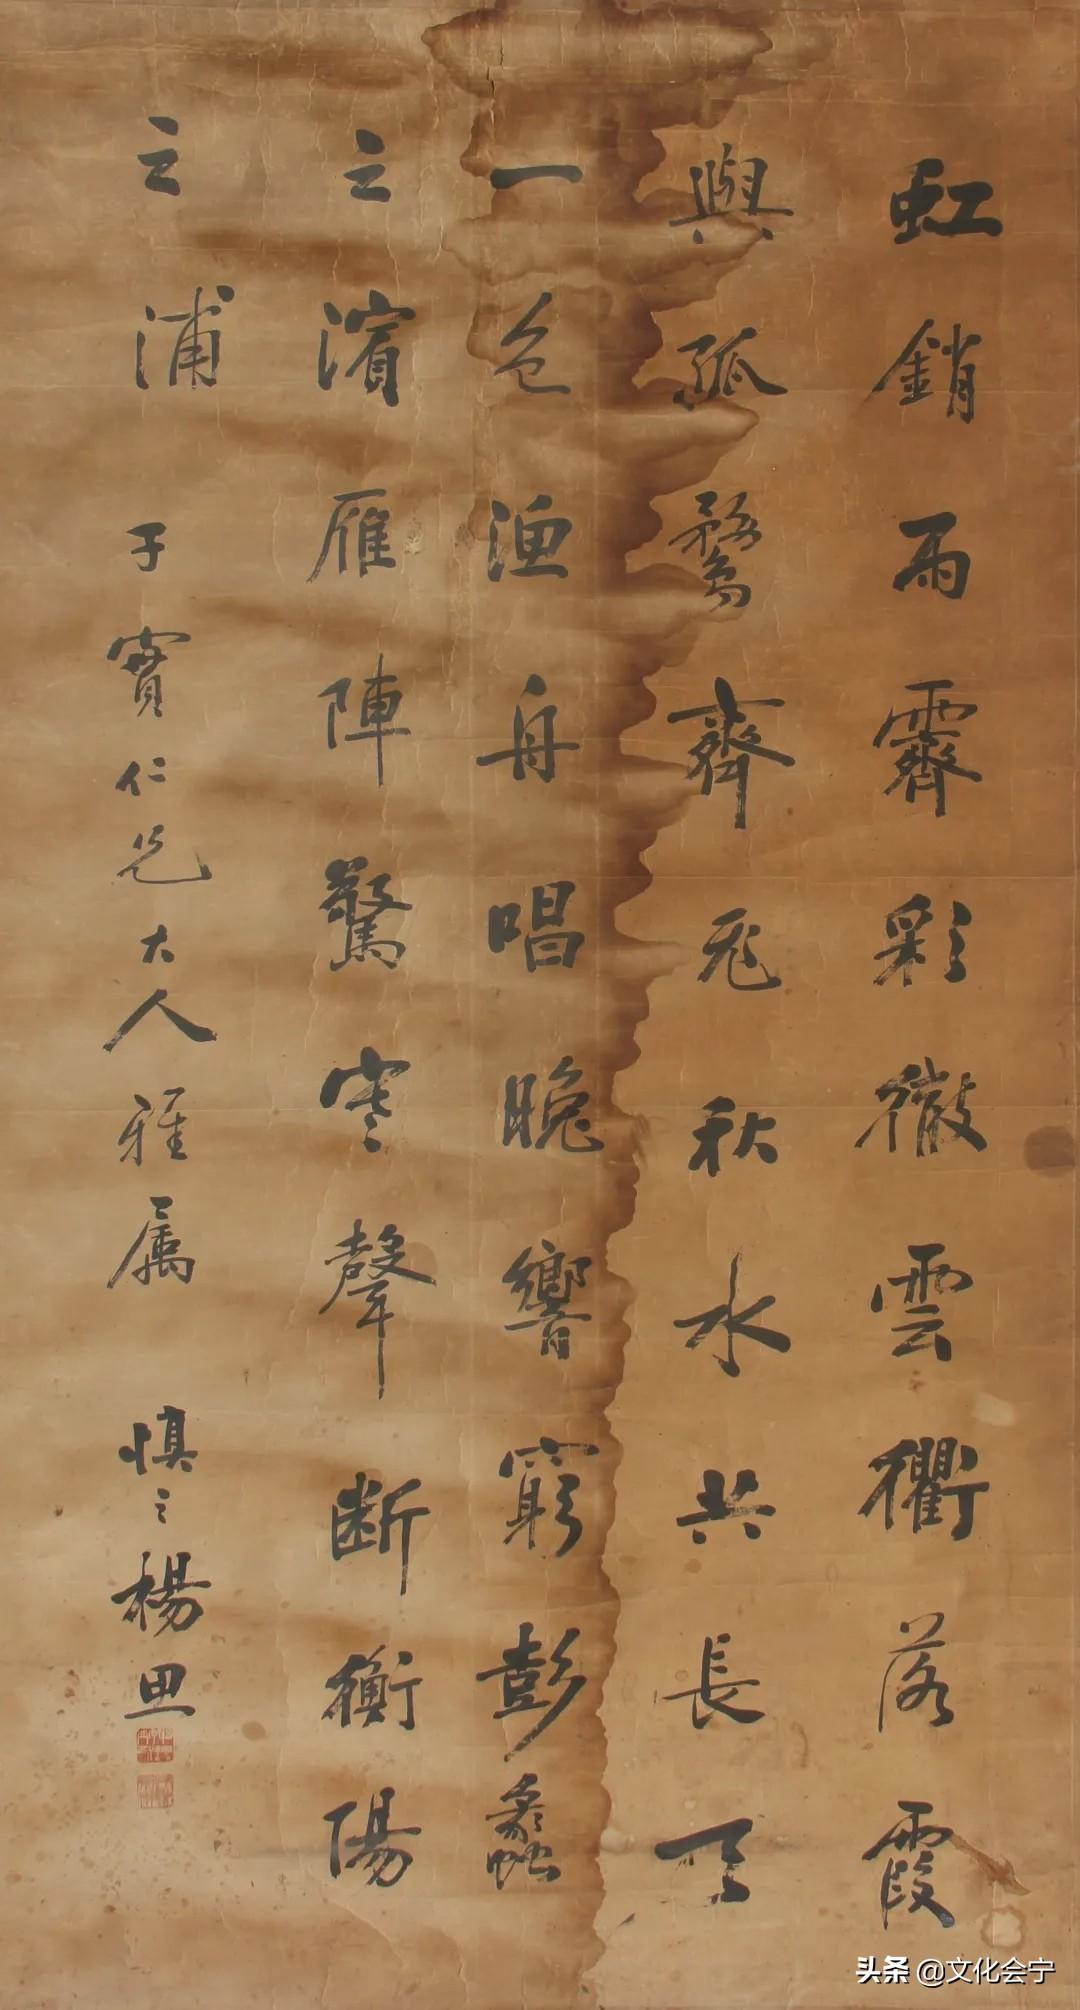 虹銷雨霽彩徹雲衢落霞
與孤鶩齊飛秋水共長天
一色漁舟唱晚響窮彭蠡
之濱雁陣驚寒聲断衡陽
之浦 子實仁兄大人雅属 慎之楊思
头条 @文化会宁